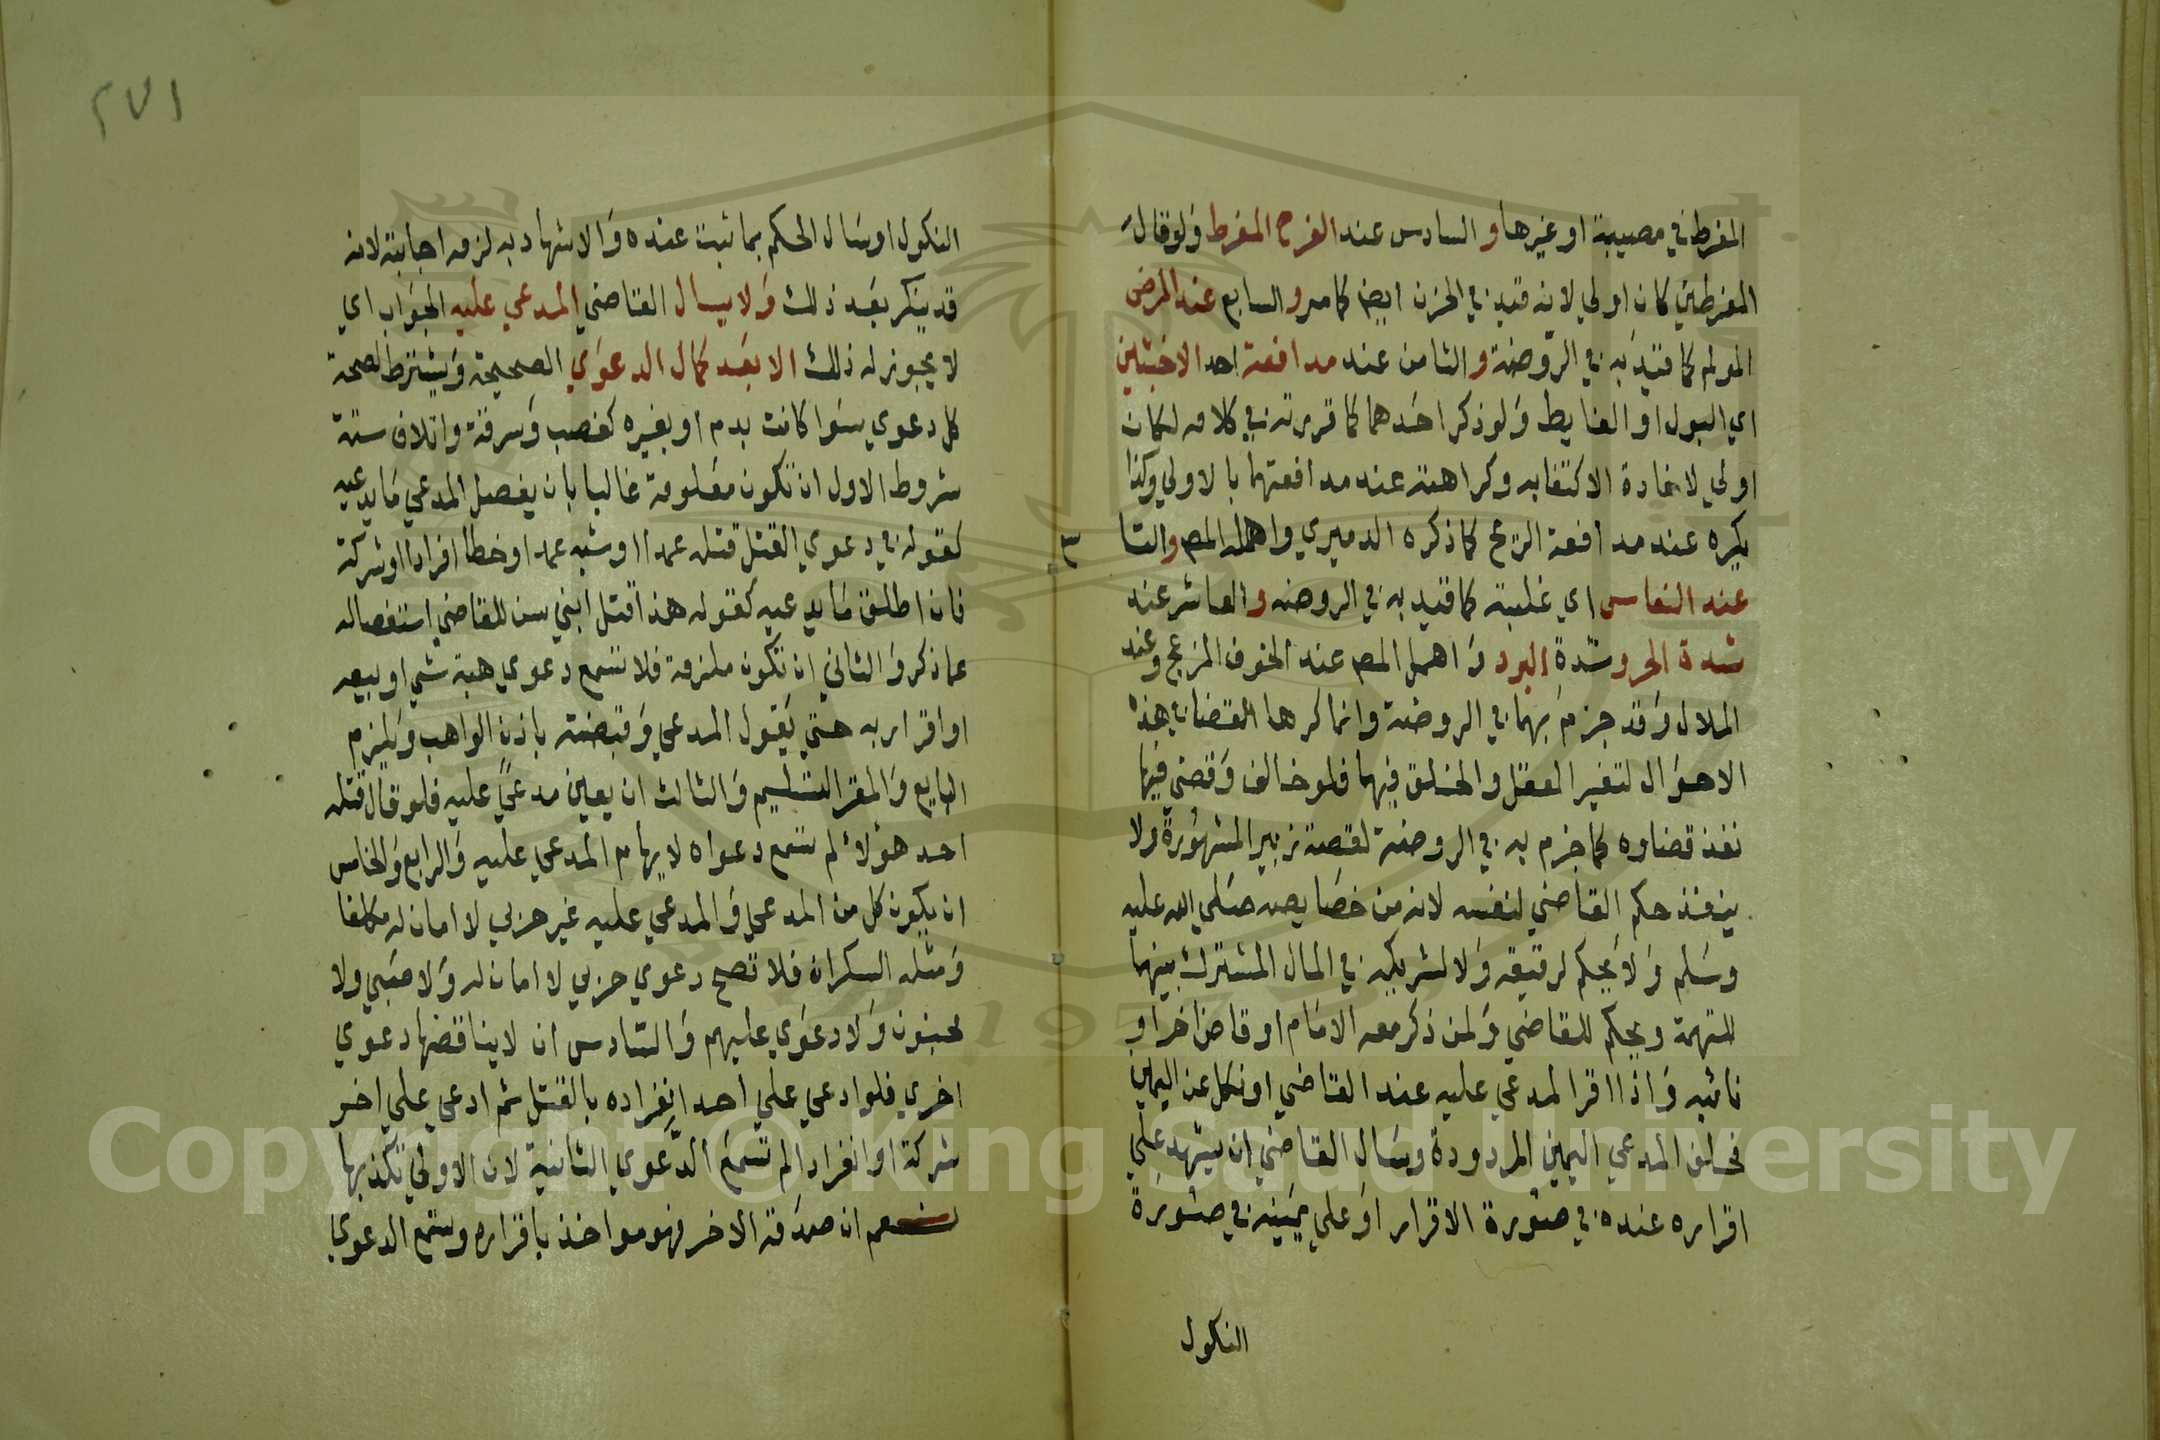 المفرط في مصيبة او غيرها والسادس عند الفرح المفرط ولو قال
المفرطين كان اولي لانه قيد في الحزن ايضا كما مر والسابع عند المرض
المولم كما قيد به في الروضة والثامن عند مدافعة احد الاخبثين
اي البول او الغايط ولو ذكر احدهما كما قررته في كلامه لكان
اولي لافادة الاكتفا به وكراهته عند مدافعتهما بالاولي وكذا
يكره عند مدافعة الريح كما ذكره الدميري واهمله المص والتا
عند النعاس اي غلبته كما قيد به في الروضه والعاشر عند
شدة الحر وشدة البرد واهمل المص عند الخوف المزعج وعند
الملال وقد جزم بهما في الروضة وانما كره القضا في هذه
الاحوال لتغير العقل والخلق فيها فلو خالف وقضي فيها
نفذ قضاوه كما جزم به في الروضة لقصة زبير المشهورة ولا
ينفذ حكم القاضي لنفسه لانه من خصايصه صلي الله عليه
وسلم ولا يحكم لرقيقه ولا لشريكه في المال المشترك بينهما
للتهمة ويحكم للقاضي ولمن ذكر معه الامام او قاض اخر او
نائبه واذا اقر المدعي عليه عند القاضي او نكل عن اليمين
فحلف المدعي اليمين المردودة وسال القاضي ان يشهد علي
اقراره عنده في صورة الاقرار او علي يمينه في صورة
النكول
٣
٢٧١
النكول او سال الحكم بما ثبت عنده والاشهاد به لزمه اجابته لانه
قد ينكر بعد ذلك ولا يسال القاضي المدعي عليه الجواب اي
لا يجوز له ذلك الا بعد كمال الدعوي الصحيحة ويشترط لصحة
كل دعوي سوا كانت بدم او بغيره كغصب وسرقة واتلاف ستة
شروط الاول ان تكون معلومة غالبا بان يفصل المدعي ما يدعيه
كقوله في دعوي القتل قتله عمدا او شبه عمد او خطا افرادا او شركة
فان اطلق ما يدعيه كقوله هذا قتل ابني سن للقاضي استفصاله
عما ذكر والثاني ان تكون ملزمة فلا تسمع دعوي هبة شي او بيعه
او اقرار به حتي يقول المدعي وقبضته باذن الواهب ويلزم
البايع والمقر التسليم والثالث ان يعين مدعي عليه فلو قال قتله
احد هؤلاء لم تسمع دعواه لابهام المدعي عليه والرابع والخامس
ان يكون كل من المدعي والمدعي عليه غير حربي لا امان له مكلفا
ومثله السكران فلا تصح دعوي حربي لا امان له ولا صبي ولا
مجنون ولا دعوي عليهم والسادس ان لا يناقضها دعوي
اخري فلو ادعي علي احد انفراده بالقتل ثم ادعي علي اخر
شركة او انفرادا لم تسمع الدعوي الثانية لان الاولي تكذبها
نعم ان صدقه الاخر فهو مواخذ باقراره وتسمع الدعوي
Copyright © King Saud University